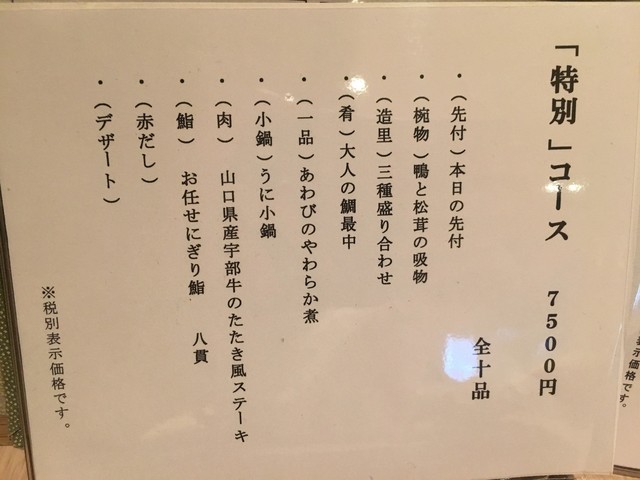 「特別」コース 7500円
全十品
・(先付)本日の先付
・(椀物)鴨と松茸の吸物
・(造里)三種盛り合わせ
・(肴)大人の鯛最中
・(一品)あわびのやわらか煮
・(小鍋)うに小鍋
・(肉) 山口県産宇部牛のたたき風ステーキ
・(鮨) お任せにぎり鮨 八貫
・(赤だし)
・(デザート)
※税別表示価格です。
表示価格です。